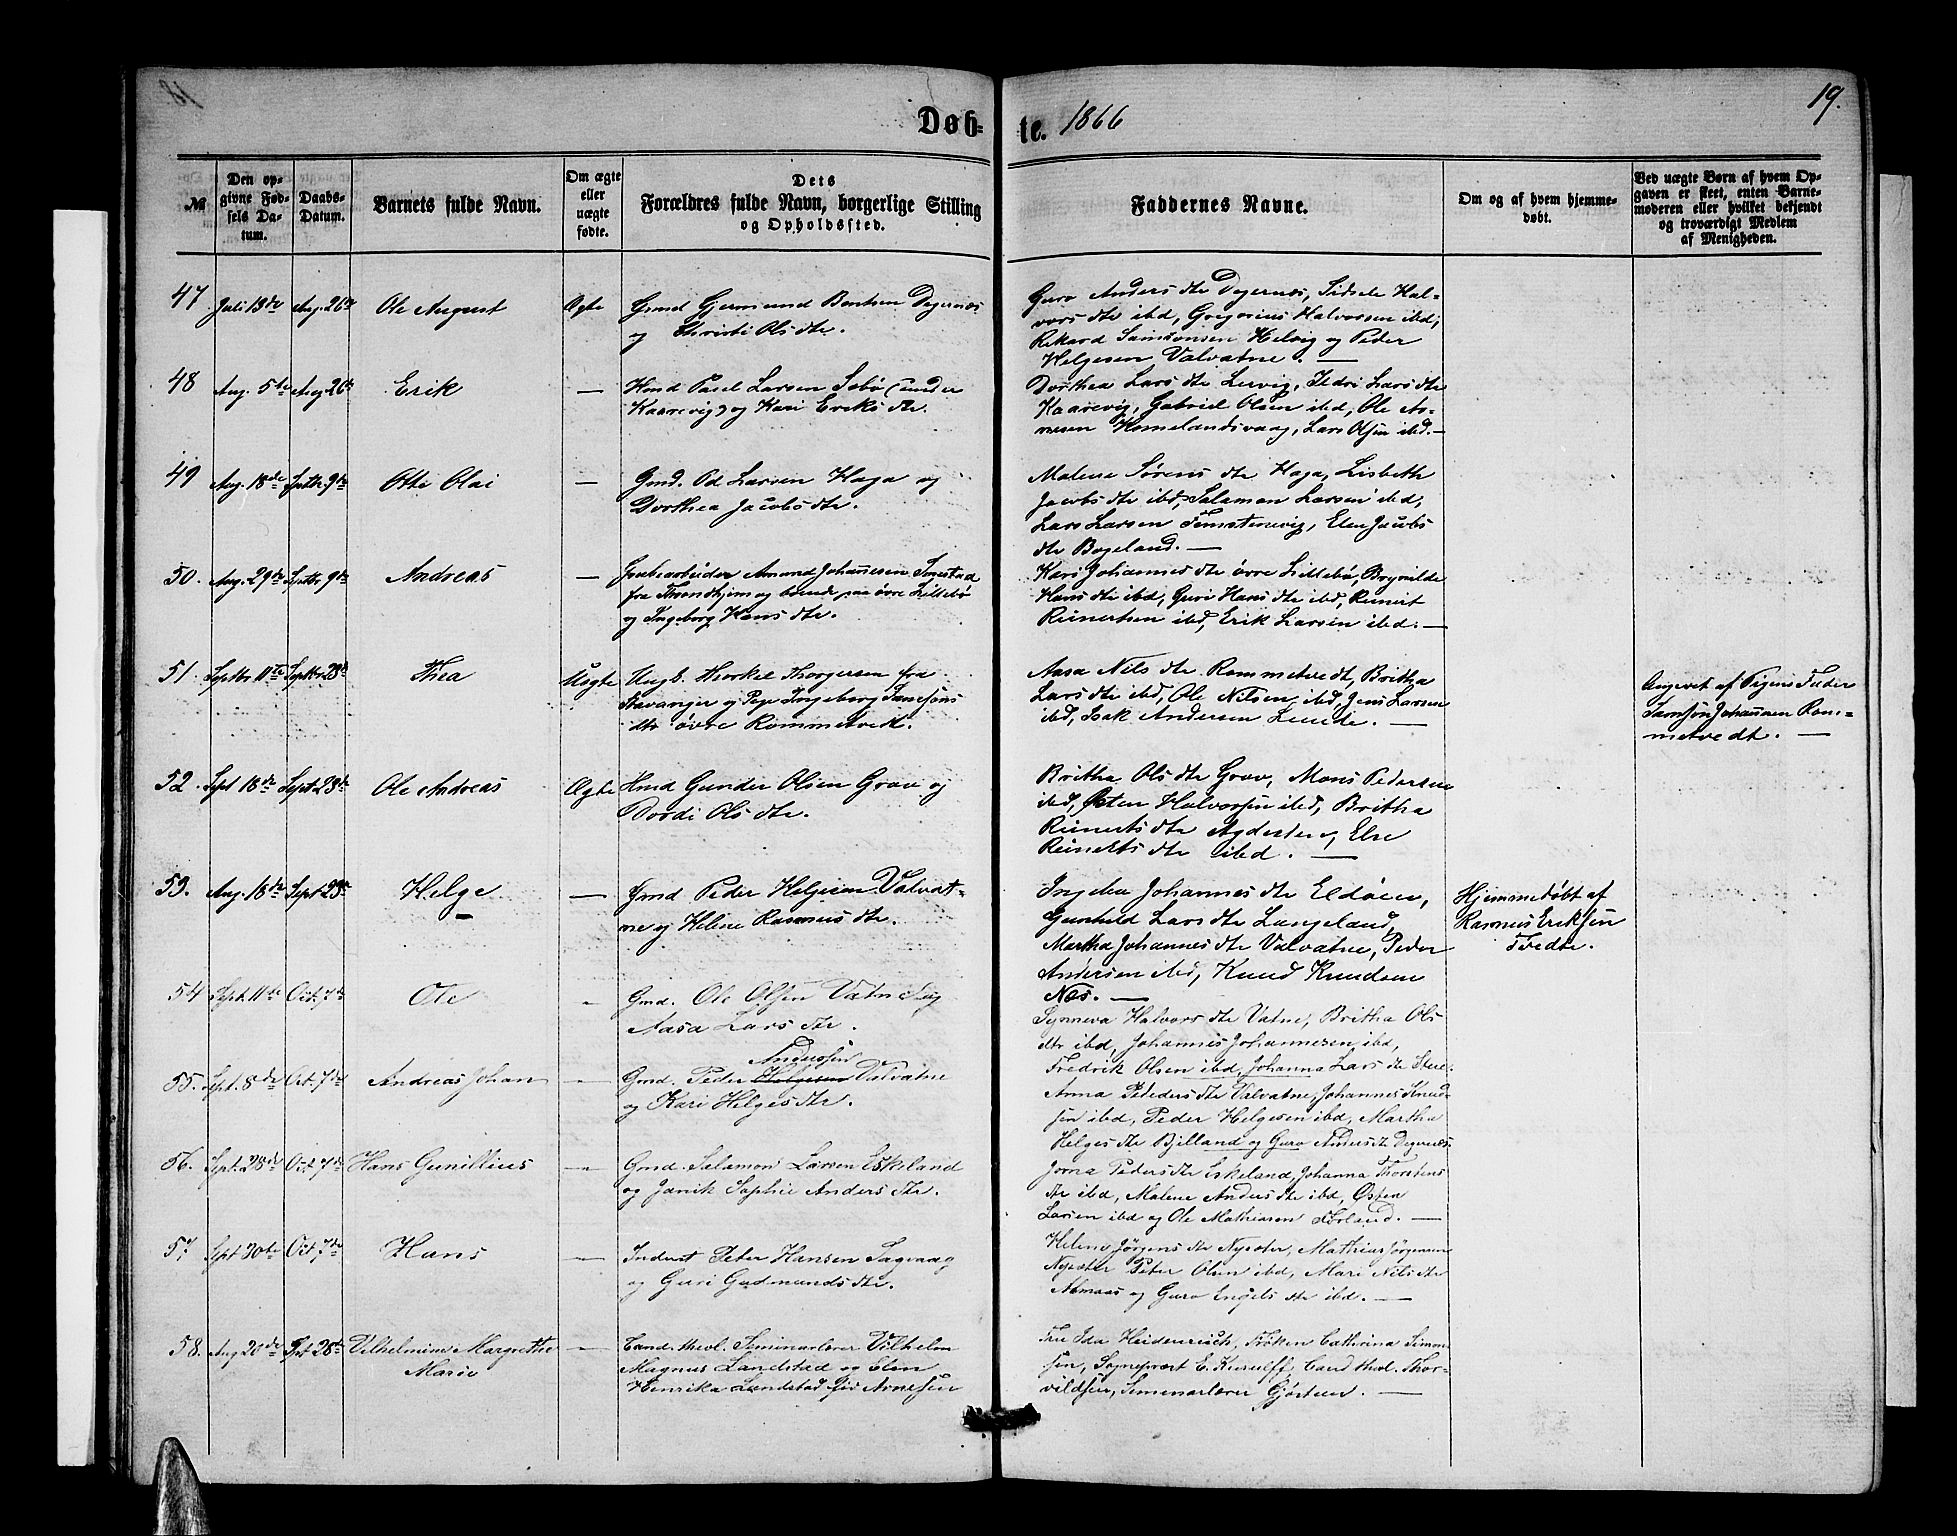 Døb-
te. 1866
19.
№
Den op-
givne Fød-
sels Da-
tum.
Daabs-
Datum.
Barnets fulde Navn.
Om ægte
eller
uægte
fødte.
Dets
Forældres fulde Navn, borgerlige Stilling
og Opholdssted.
Faddernes Navne.
Om og af hvem hjemme-
døbt.
Ved uægte Børn af hvem Op-
gaven er skeet, enten Barne-
moderen eller hvilket bekjendt
og troværdigt Medlem
af Menigheden.
47 Juli 13de Aug. 26de Ole August Ægte Gmd Gjermund Bentsen Degernæs
og Christi Olsdtr.
Guro Andersdtr Degernæs, Sidsele Hal-
vorsdtr ibd, Gregorius Halvorsen ibd,
Rikard Samsonsen Helvig og Peder
Helgesen Valvatne. —
48 Aug. 5te Aug 26de Erik — Hmd Paul Larsen Sæbø (under
Kaarevig) og Kari Eriksdtr.
Dorthea Larsdtr Lervig, Sidri Larsdtr
Kaarevig, Gabriel Olsen ibd, Ole Ar-
nesen Hornelandsvaag, Lars Olsen ibd. —
49 Aug. 18de Septbr. 9de Otte Olai — Gmd. Od Larsen Haga og
Dorthea Jacobsdtr.
Malene Sørensdtr Haga, Lisbeth
Jacobsdtr ibd, Salamon Larsen ibd,
Lars Larsen, Elen Jacobs
dtr Bogeland. —
50. Aug. 29de Septbr. 9de Andreas — Amund Johannesen
fra Throndhjem og boende paa øvre Littlebø
og Ingeborg Hansdtr.
Kari Johannesdtr øvre Littlebø, Brynilde
Hansdtr ibd, Guri Hansdtr ibd, Reinert
Reinertsen ibd, Erik Larsen ibd. —
51. Septbr 11te Septbr 23de Thea Uægte Ungk. Thorgersen fra
Stavanger og Pige Ingeborg Samsons
dtr øvre Rommetvedt.
Aasa Nilsdtr Rommetvedt, Britha
Larsdtr ibd, Ole Nilsen ibd, Jens Larsen
ibd, Isak Andersen Lunde. —
Angivet af Pigens Fader
Samson Johannesen Rom-
metvedt. —
52. Sept 18de Sept 23de Ole Andreas Ægte Hmd Gunder Olsen Grov og
Dordi Olsdtr.
Britha Olsdtr Grov, Mons Pedersen
ibd, Østen Halvorsen ibd, Britha
Reinertsdtr Agdestein, Else
Reinertsdtr ibd. —
53. Aug. 16de Sept 23de Helge — Gmd Peder Helgesen Valvat-
ne og Helene Rasmusdtr.
Ingeba Johannesdtr Eldøen,
Gunhild Larsdtr Langeland,
Martha Johannesdtr Valvatne, Peder
Andersen ibd, Knud Knudsen
Næs. —
Hjemmedøbt af
Rasmus Eriksen
Tvedte.
54 Sept. 11te Oct. 7de Ole „ Gmd. Ole Olsen Vatne og
Aasa Larsdtr.
Synneva Halvorsdtr Vatne, Britha Ols
dtr ibd, Johannes Johannesen ibd,
Fredrik Olsen ibd, Johanna Larsdtr Stue.
55. Sept. 8de Oct. 7de Andreas Johan „ Andersen
Gmd. Peder Helgesen Valvatne
og Kari Helgesdtr.
Anna Pedersdtr Valvatne, Johannes Knud-
sen ibd, Peder Helgesen ibd, Martha
Helgesdtr Bjelland og Guro Andersdtr Degernæs.
56. Sept. 28de Oct 7de Hans Gunillius — Gmd. Salamon Larsen Eskeland
og Janik Sophie Andersdtr.
Jorna Pedersdtr Eskeland, Johanna Thorstens
dtr ibd, Malene Andersdtr ibd, Østen
Larsen ibd og Ole Mathiasen Hovland. —
57 Sept 30te Oct 7de Hans — Inderst Peter Hansen Sagvaag
og Guri Gudmundsdtr.
Helene Jørgensdtr Nysæter, Mathias Jørgensen
Nysæter Peter Olsen ibd, Mari Nilsdtr
Almaas og Guro Engelsdtr ibd. —
58. Aug 20de Spt 28de Vilhelmine Margrethe
Marie
— Cand. theol. Seminarlærer Vilhelm
Magnus Landstad og Elen
Henrika Landstad født Arnesen
Fru Ida Heidenreich, Frøken Cathrina Simon-
sen, Sogneprest E. Kurulff, Cand theol. Thor-
vildsen, Seminarlærer Gjørtsen. —